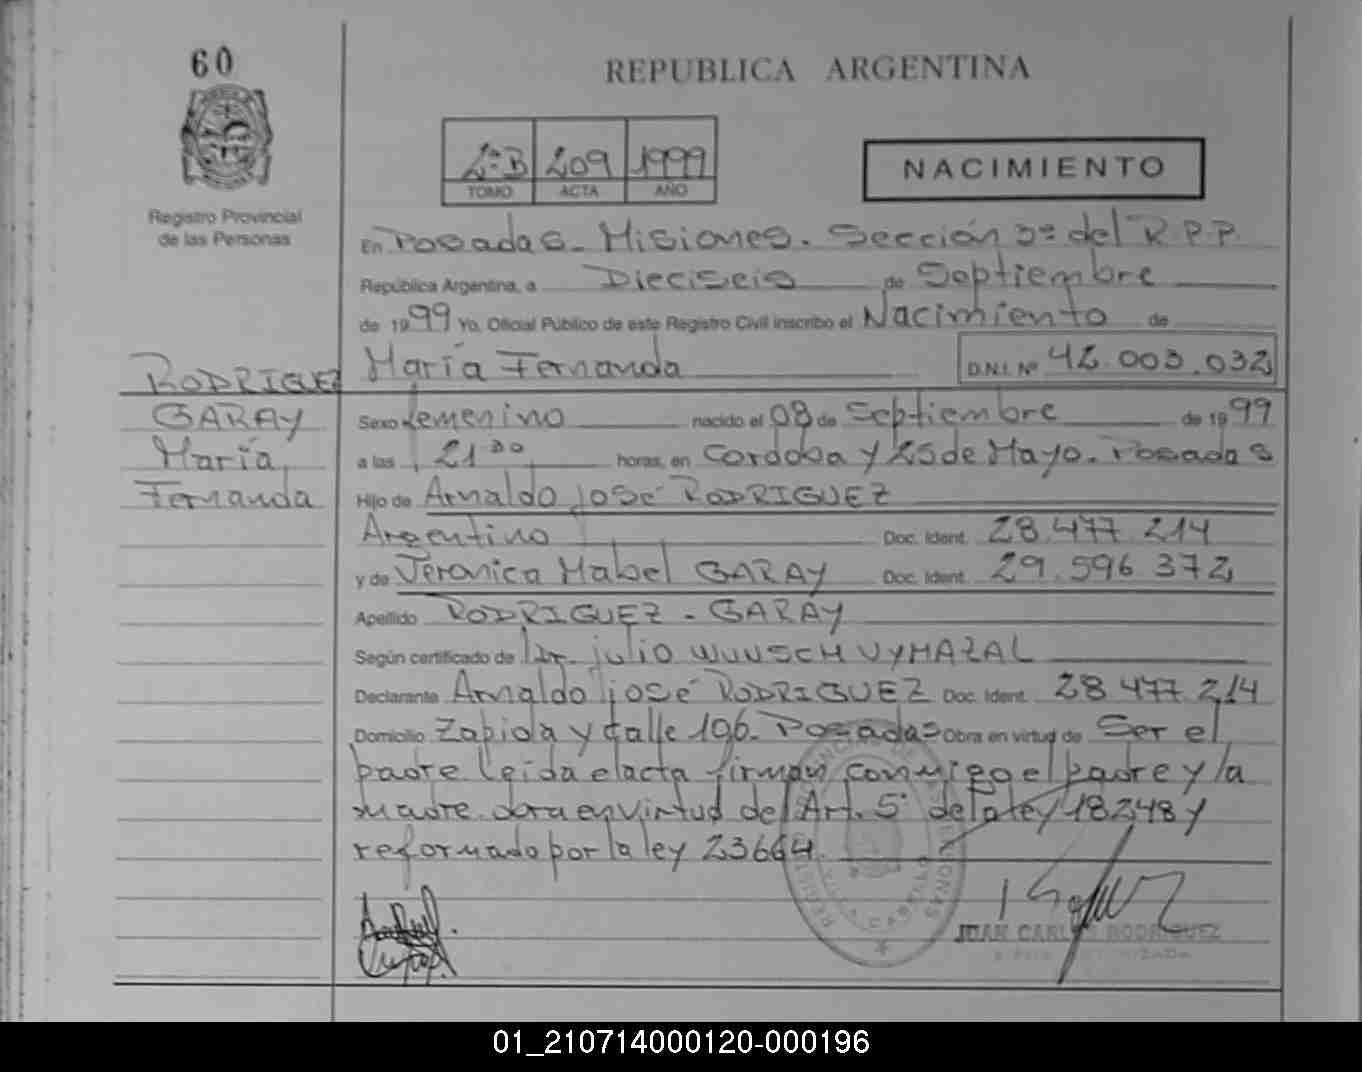 60
REPUBLICA ARGENTINA
2º B 209 1999
TOMO ACTA AÑO
NACIMIENTO
Registro Provincial
de las Personas
En Posadas - Misiones. Sección 3ª del R.P.P.
República Argentina, a Dieciseis de Septiembre
de 1999 Yo, Oficial Público de este Registro Civil inscribo el Nacimiento de
María Fernanda D.N.I. Nº 42.003.032
RODRIGUEZ
GARAY
María
Fernanda
Sexo femenino nacido el 08 de Septiembre de 1999
a las 21 30 horas, en Cordoba y 25 de Mayo. Posadas
Hijo de Arnaldo José RODRIGUEZ
Argentino Doc. Ident. 28.477.214
y de Veronica Mabel GARAY Doc. Ident. 29.596.372
Apellido RODRIGUEZ - GARAY
Según certificado de Dr. Julio WUNSCH VYMAZAL
Declarante Arnaldo José RODRIGUEZ Doc. Ident. 28.477.214
Domicilio Zapiola y calle 196. Posadas Obra en virtud de Ser el
padre leida el acta firman conmigo el padre y la
madre. obra en virtud del Art. 5º de la ley 18248 y
reformado por la ley 23664.
JUAN CARLOS RODRIGUEZ
01_210714000120-000196